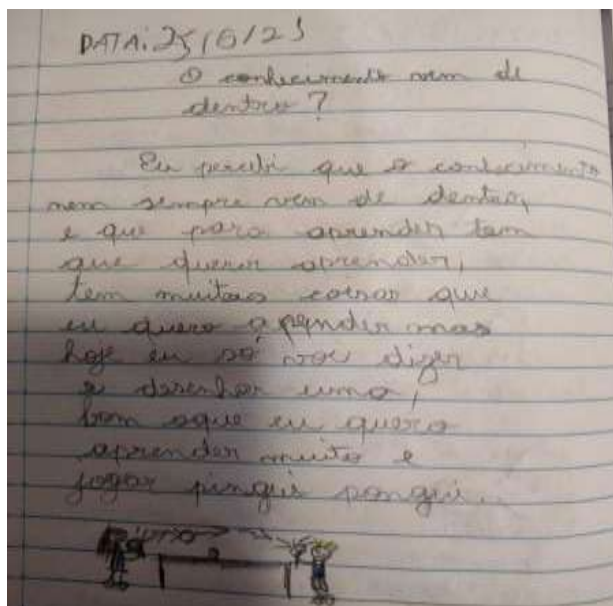 DATA: 25/6/21
O conhecimento vem de
dentro?
Eu percebi que o conhecimento
nem sempre vem de dentro,
e que para aprender tem
que querer aprender,
tem muitas coisas que
eu quero apender mas
hoje eu só vou dizer
e desenhar uma,
bom oque eu quero
aprender muito e
jogar pingui pongui...